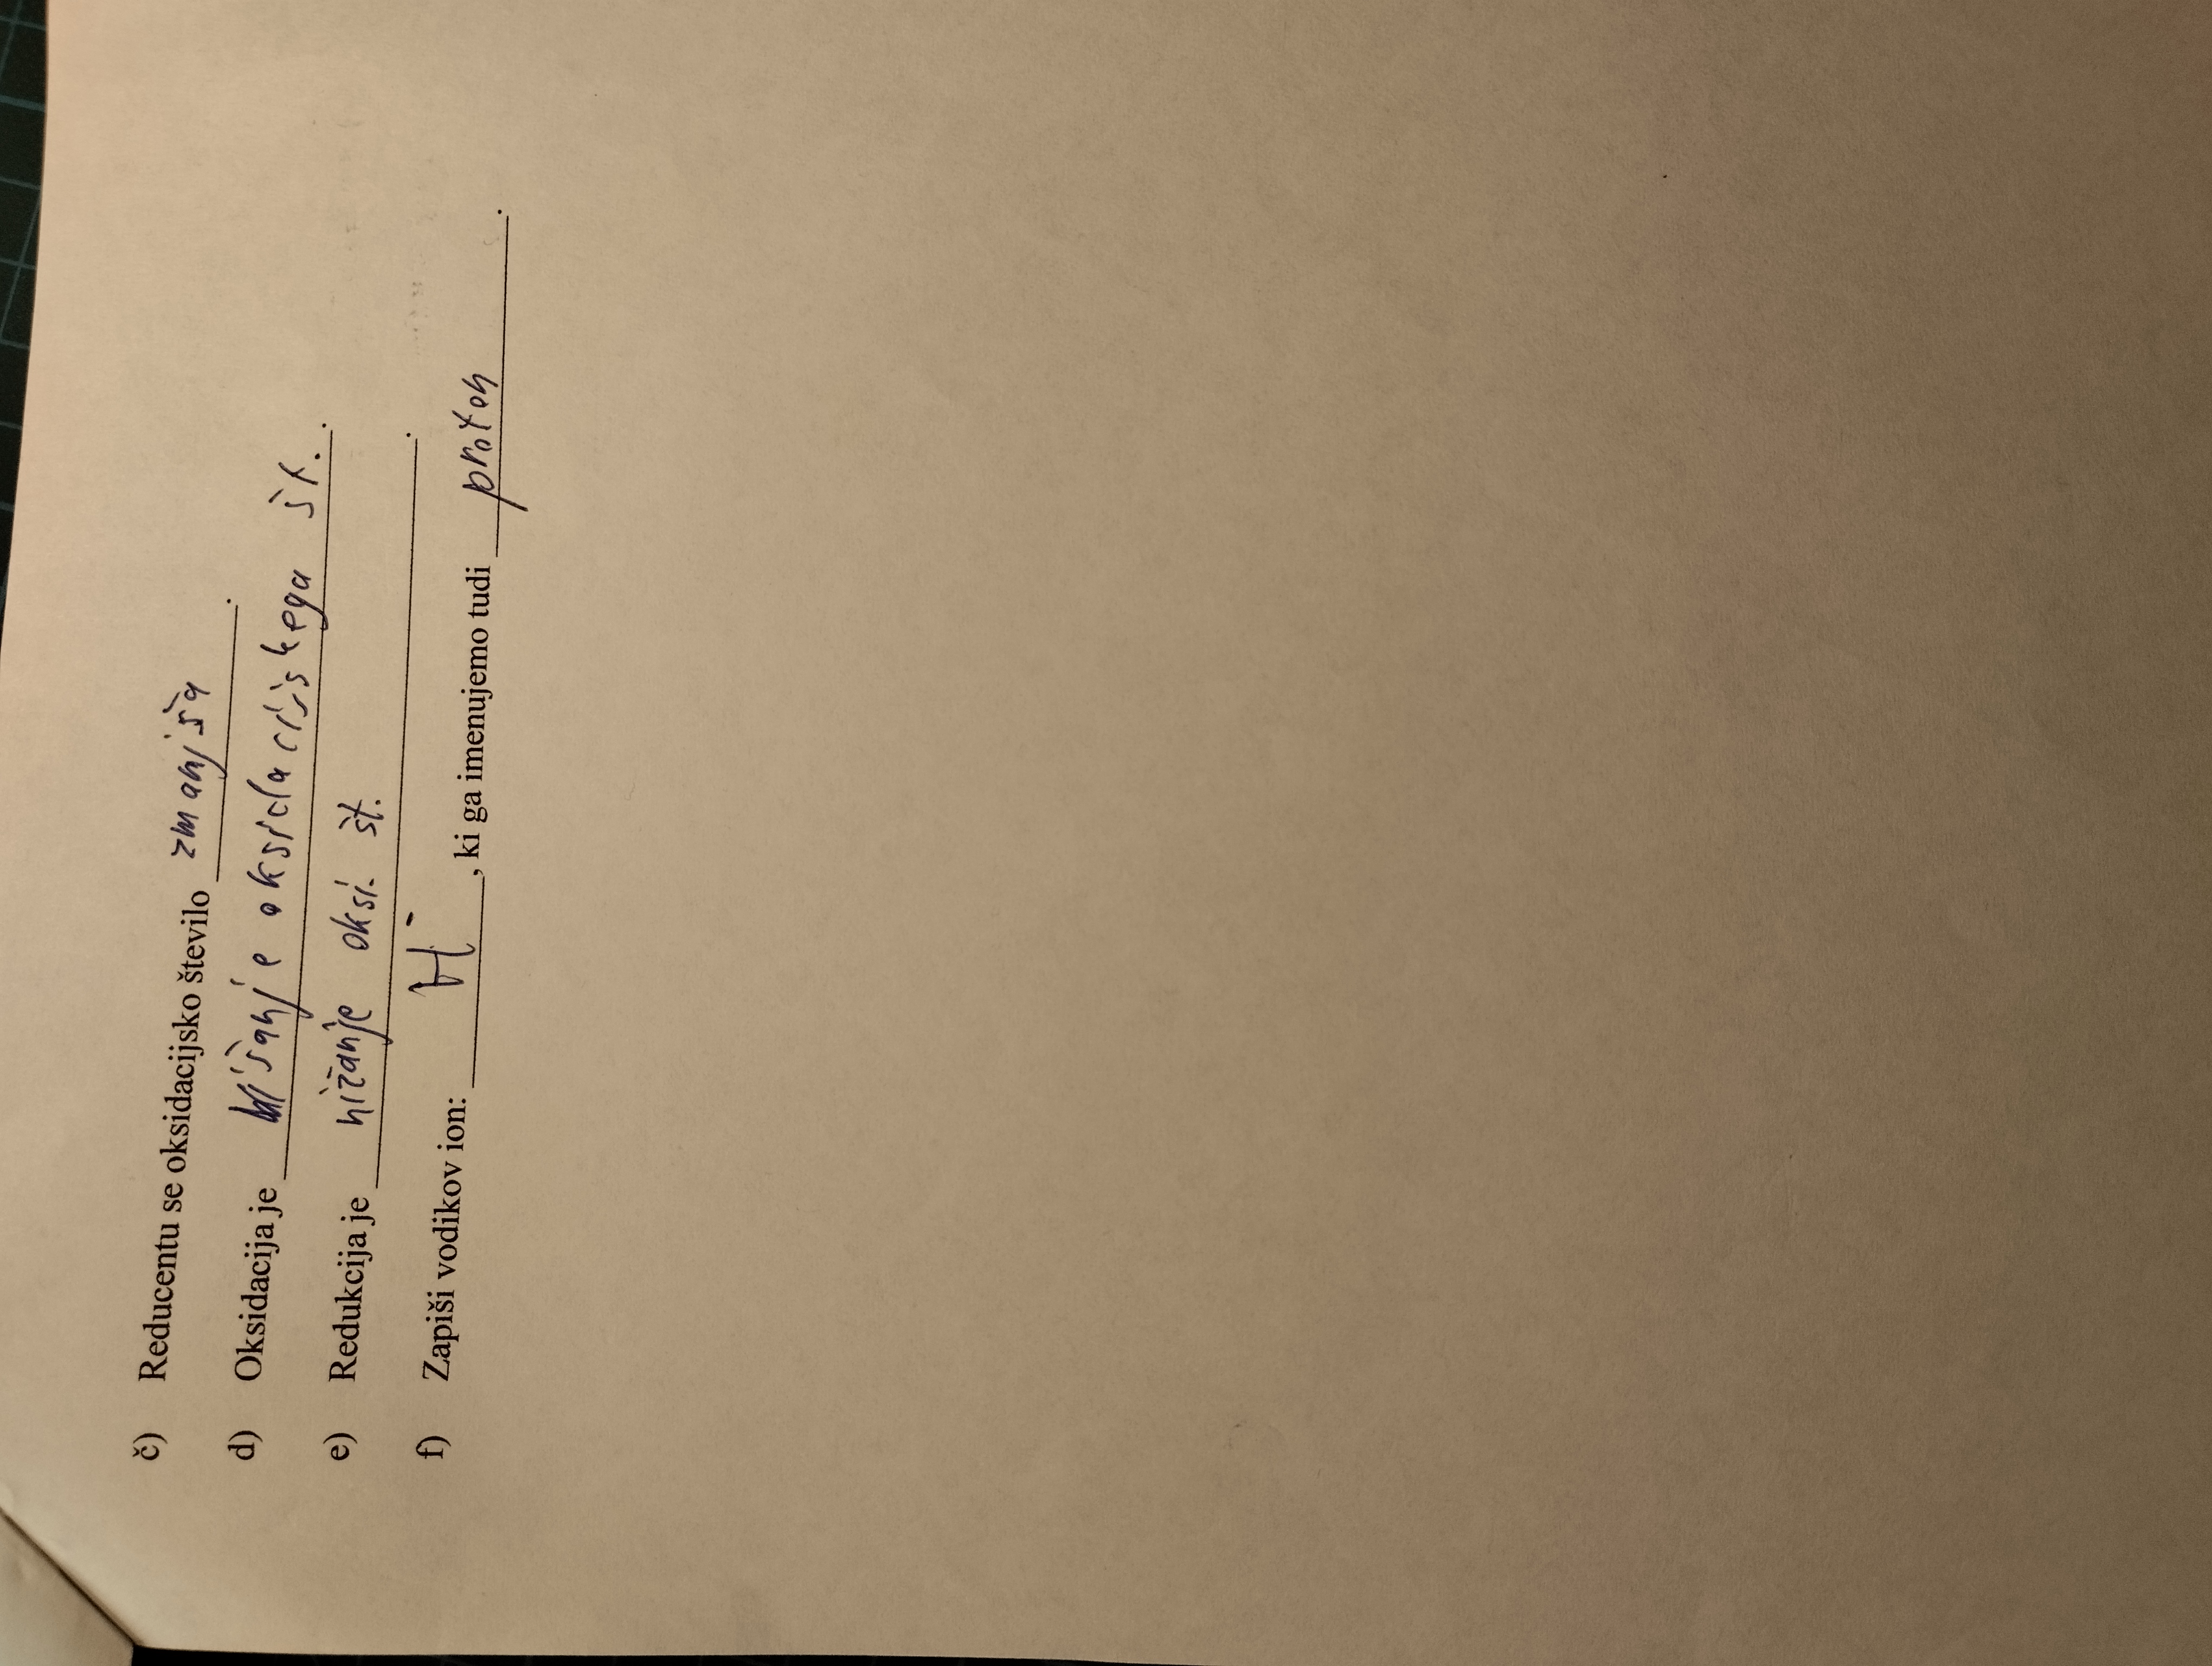 č) Reducentu se oksidacijsko število zmanjša.
d) Oksidacija je višanje oksidacijskega št..
e) Redukcija je nižanje oksi. št. .
f) Zapiši vodikov ion: H⁻, ki ga imenujemo tudi proton.